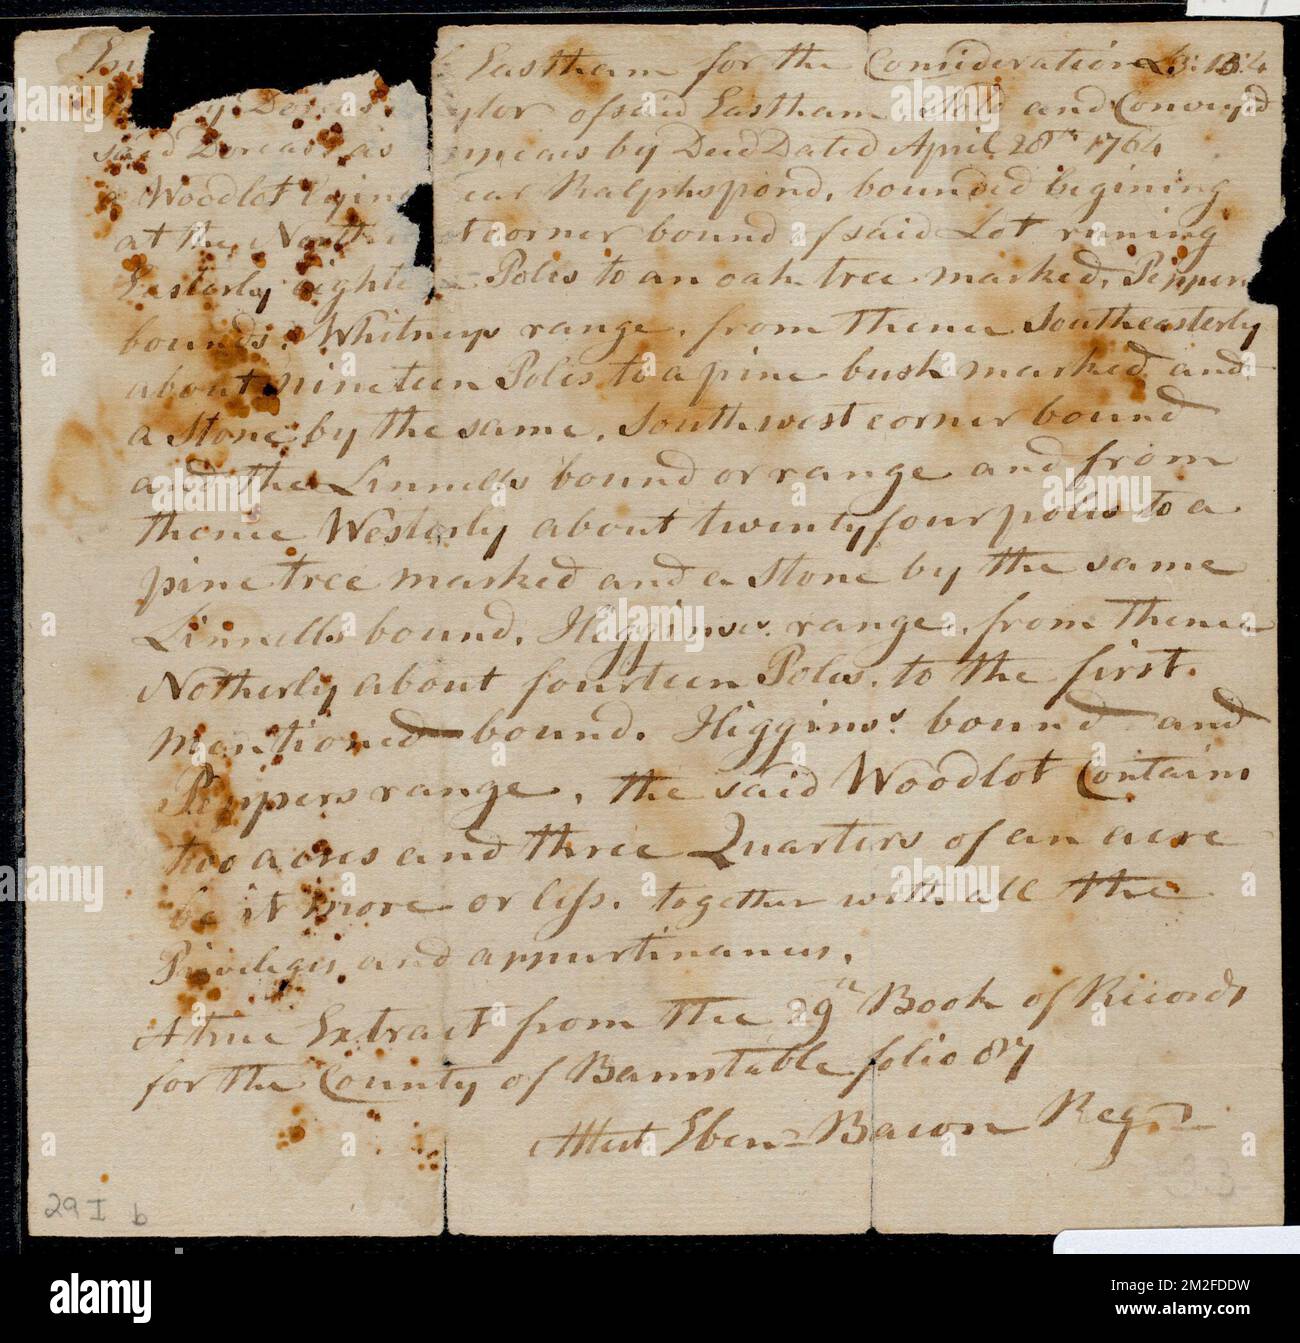 Eastham for the Consideration £3:13:4
Dorcas ylor of said Eastham, Sold and Convey'd
said Dorcas, as means by Deed Dated April 28th 1764
a Woodlot lying ear Ralphs pond, bounded begining
at the North st corner bound of said Lot runing
Easterly eighte Poles to an oak tree marked, Peppers
bounds, Whitneys range, from thence Southeasterly
about nineteen Poles to a pine bush marked and
a Stone by the same, Southwest corner bound
and the Linnells bound or range and from
thence Westerly about twenty four poles to a
pine tree marked and a Stone by the same
Linnells bound, Higgins's range, from thence
Notherly about fourteen Poles, to the first
mentioned bound, Higgins's bound and
Peppers range, the said Woodlot Contains
two acres and three Quarters of an acre
be it more or less, together with all the
Priveleges and appurtinances,
A true Extract from the 29th Book of Records
for the County of Barnstable folio 87
Attest Eben Bacon Regr
33
29 I b
alamy
Image ID: 2M2FDDW
www.alamy.com